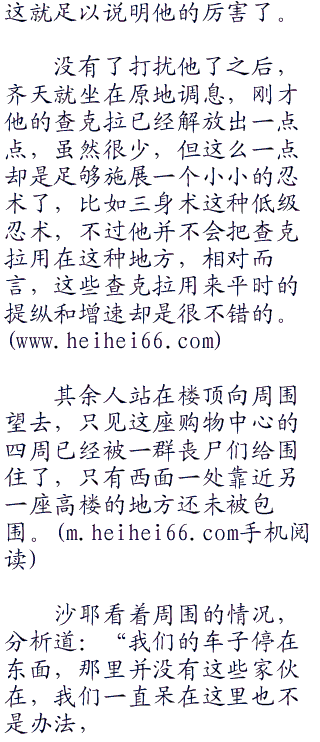 这就足以说明他的厉害了。
没有了打扰他了之后，
齐天就坐在原地调息，刚才
他的查克拉已经解放出一点
点，虽然很少，但这么一点
却是足够施展一个小小的忍
术了，比如三身术这种低级
忍术，不过他并不会把查克
拉用在这种地方，相对而
言，这些查克拉用来平时的
提纵和增速却是很不错的。
(www.heihei66.com)
其余人站在楼顶向周围
望去，只见这座购物中心的
四周已经被一群丧尸们给围
住了，只有西面一处靠近另
一座高楼的地方还未被包
围。(m.heihei66.com手机阅
读)
沙耶看着周围的情况，
分析道：“我们的车子停在
东面，那里并没有这些家伙
在，我们一直呆在这里也不
是办法，